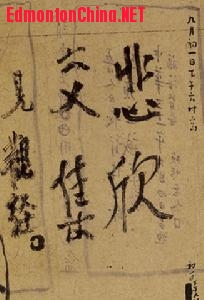 EdmontonChina.NET
九月初一日下午六时写
悲欣
交集
見觀經。